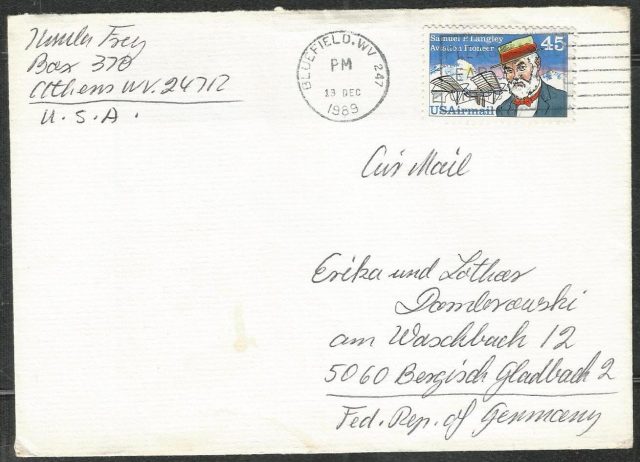 Ursula Frey
Box 378
Athens WV. 24712
U.S.A.
BLUEFIELD, WV 247
PM
13 DEC
1989
Samuel P. Langley
Aviation Pioneer
45
USAirmail
Air Mail
Erika und Lothar
Domberowski
am Waschbach 12
5060 Bergisch Gladbach 2
Fed. Rep. of Germany